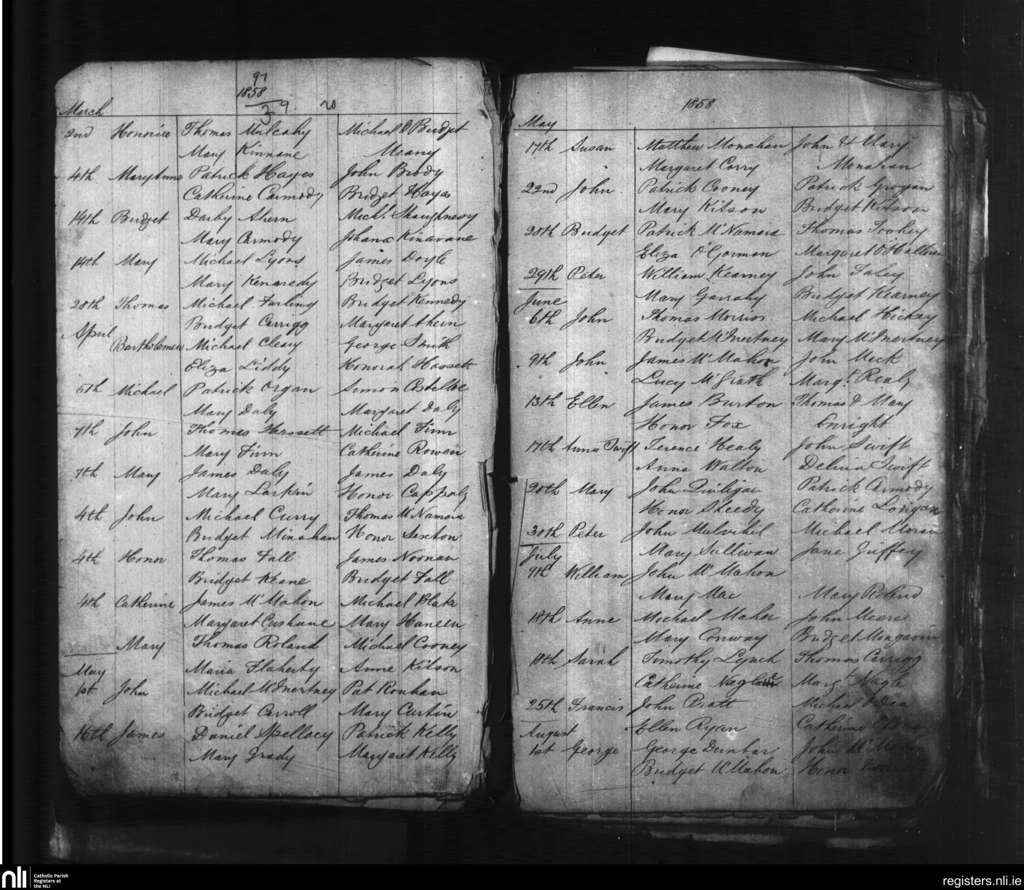 97
1858
29. 20
March
2nd Honorice Thomas Mulcahy Michael & Bridget
Mary Kinnane Meany
4th Mary Anne Patrick Hayes John Brody
Catherine Carmody Bridget Hayes
14th Bridget Darby Ahern Michl. Shaughnessy
Mary Carmody Johana Kinavane
14th Mary Michael Lyons James Doyle
Mary Kennedy Bridget Lyons
28th Thomas Michael Bridget Kennedy
Bridget Carrigg Margaret Ahern
April
Bartholemew Michael Cleary George Smith
Eliza Liddy Honorah Hassett
5th Michael Patrick Organ Simon Costelloe
Mary Daly Margaret Daly
7th John Thomas Hassett Michael Finn
Mary Finn Catherine Rowen
7th Mary James Daly James Daly
Mary Larkin Honor
4th John Michael Curry Thomas McNamara
Bridget Minahan Honor Sexton
4th Honor Thomas Fall James Noonan
Bridget Keane Bridget Fall
4th Catherine James McMahon Michael Blake
Margaret Cushane Mary Haneen
Mary Thomas Roland Michael Cooney
May Maria Flaherty Anne Kilson
1st John Michael McInertney Pat Ronhan
Bridget Carroll Mary Curtin
16th James Daniel Spellacy Patrick Kelly
Mary Grady Margaret Kelly
1858
May
17th Susan Matthew Monahan John & Mary
Margaret Corry Monahan
22nd John Patrick Cooney Patrick Grogan
Mary Kilson Bridget Kilson
28th Bridget Patrick McNamara Thomas Toohey
Eliza O'Gorman Margaret O'Halloran
29th Peter William Kearney John Faley
June Mary Garrahy Bridget Kearney
6th John Thomas Morrison Michael Hickey
Bridget McInertney Mary McInertney
9th John James McMahon John Meek
Lucy McGrath Margt. Realy
13th Ellen James Burton Thomas & Mary
Honor Fox Enright
17th Anna Swift Terence Healy John Swift
Anna Walton Delina Swift
20th Mary John Quiligan Patrick Carmody
Honor Sheedy Catherine Lonigan
30th Peter John Mulvihil Michael Moran
July Mary Sullivan Jane Guffery
9th William John McMahon
Mary Mac Mary Roland
18th Anne Michael Maher John Meara
Mary Conway Bridget Mongavin
18th Sarah Timothy Lynch Thomas Carrigg
Catherine Margt.
25th Francis John Pratt Michael O'Dea
August Ellen Ryan Catherine
1st George George Dunbar John
Bridget McMahon Honor
nli Catholic Parish
Registers at
the NLI
registers.nli.ie